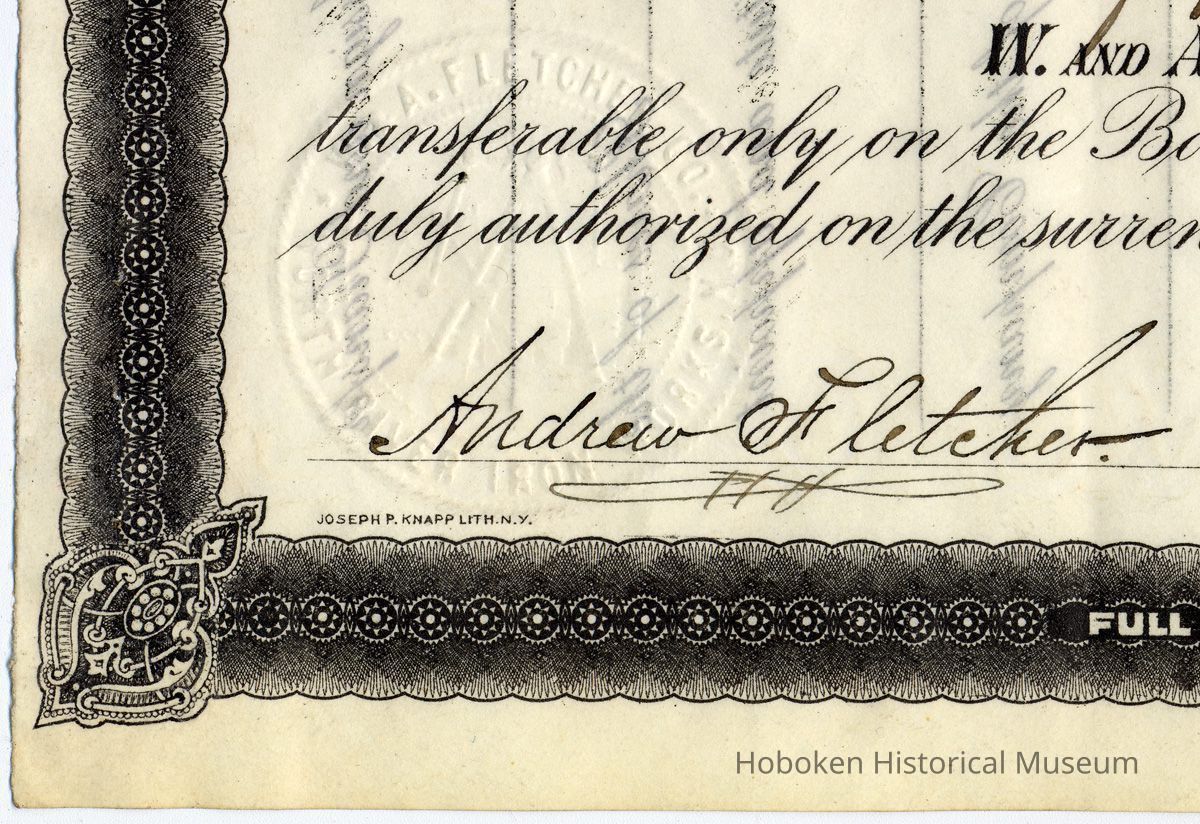 W. AND A
transferable only on the Bo
duly authorized on the surren
A. FLETCHE
Andrew Fletcher.
JOSEPH P. KNAPP LITH. N.Y.
FULL
Hoboken Historical Museum